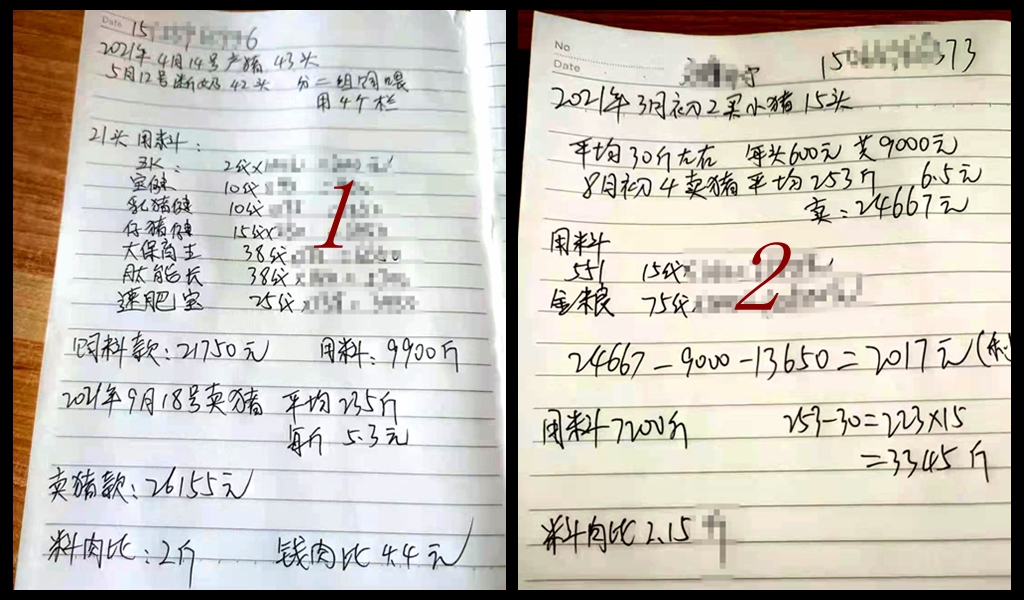 Date 15 6
2021年4月14号产猪43头
5月12号断奶42头 分二组饲喂
用4个栏
21头用料:
2代×
宝健 10代
乳猪健 10代
仔猪健 15代×
大保高主 38代
肽能长 38代
速肥宝 25代
饲料款:21750元 用料:9900斤
2021年9月18号卖猪 平均235斤
每斤 5.3元
卖猪款:26155元
料肉比:2斤 钱肉比4.4元
1
No
Date 15 373
2021年3月初2买小猪15头
平均30斤左右 每头600元 共9000元
8月初4卖猪平均253斤 6.5元
卖:24667元
用料
551 15代
金粮 75代
24667-9000-13650=2017元(利
用料7200斤 253-30=223×15
=3345斤
料肉比2.15斤
2